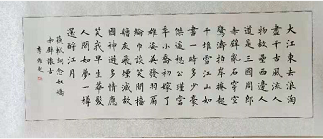 大江東去浪淘
盡千古風流人
物故壘西邊人
道是三國周郎
赤壁亂石穿空
驚濤拍岸捲起
千堆雪江山如
畫一時多少豪
傑遙想公瑾當
年小喬初嫁了
雄姿英發羽扇
綸巾談笑間檣
櫓灰飛煙滅故
國神遊多情應
笑我早生華髮
人間如夢一樽
還酹江月
蘇軾詞念奴嬌
赤壁懷古